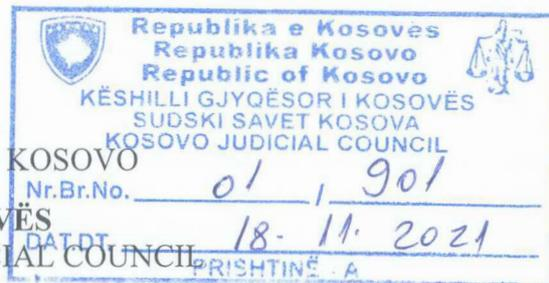 Republika e Kosovës
Republika Kosovo
Republic of Kosovo
KËSHILLI GJYQËSOR I KOSOVËS
SUDSKI SAVET KOSOVA
KOSOVO JUDICIAL COUNCIL
KOSOVO
Nr.Br.No. 01 / 901
VËS
DAT.DT. 18- 11. 2021
IAL COUNCIL
PRISHTINË - A